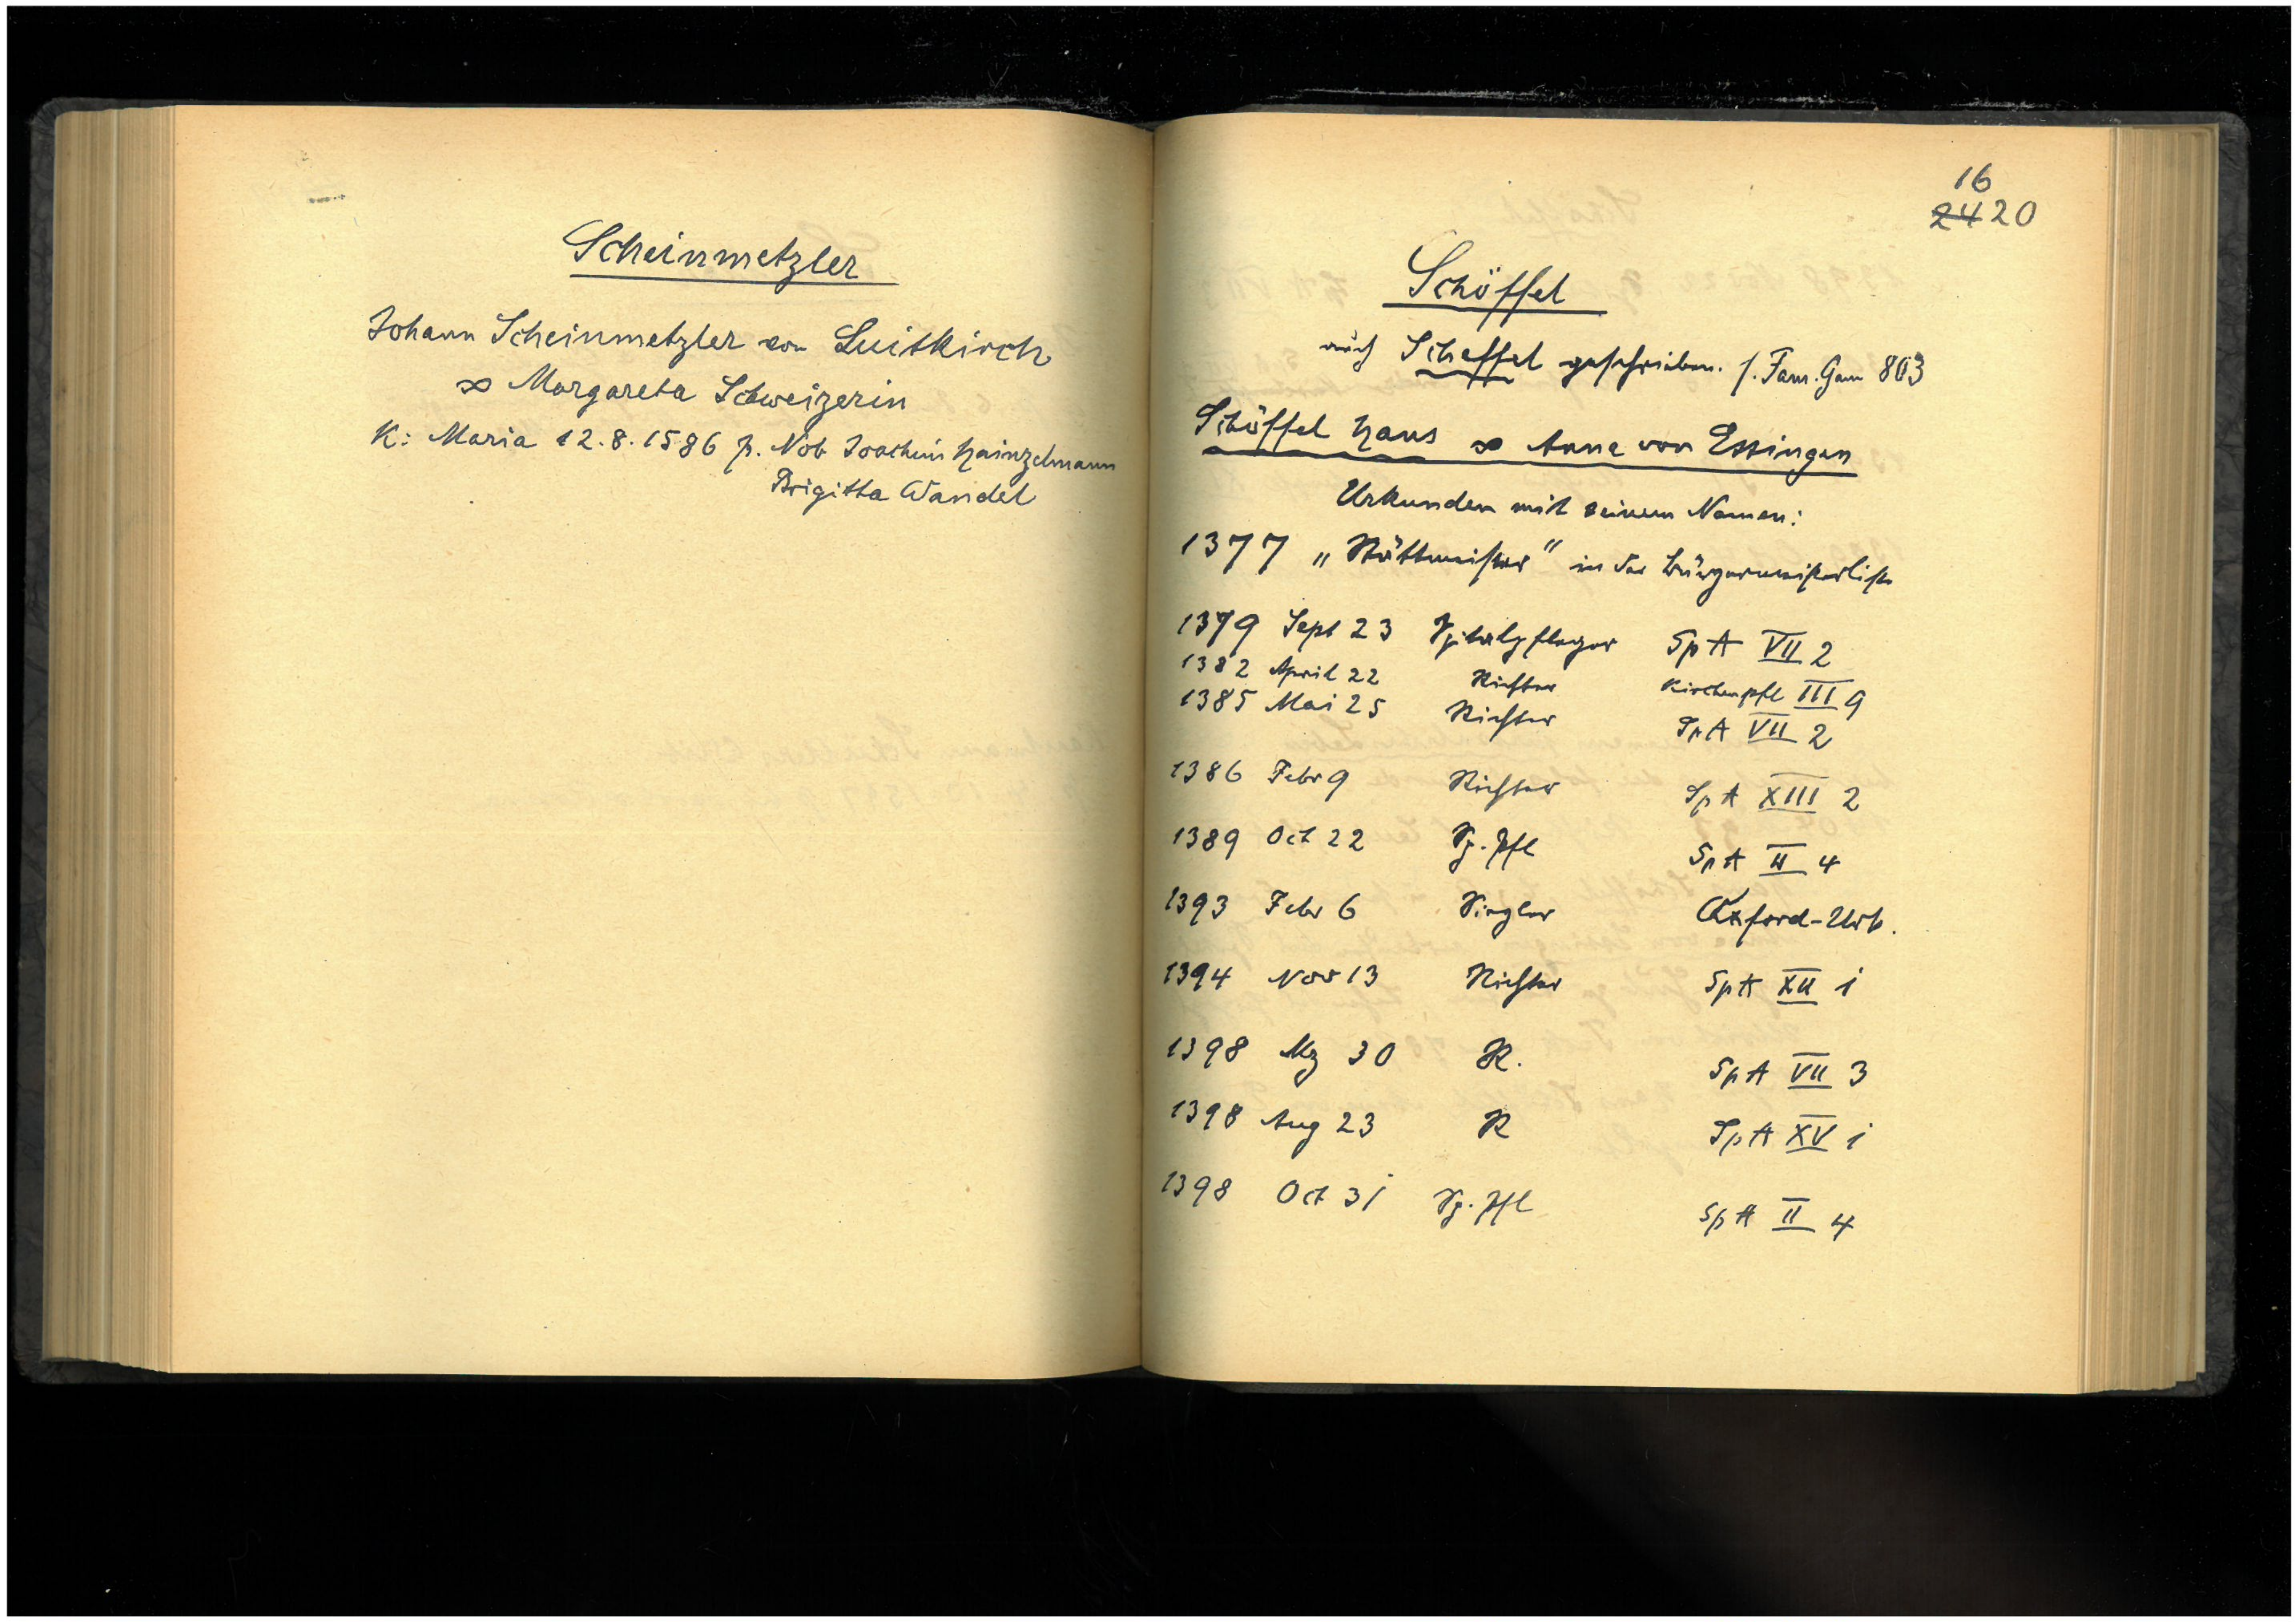 Scheinmetzler
Johann Scheinmetzler von Luitkirch
∞ Margareta Schweizerin
K: Maria 12.8.1586 p. Nob Joachim Hainzelmann
Brigitta Wandel
16
24 20
Schöffel
auch Scheffel geschrieben. s. Fam. Gem 803
Schöffel Hans ∞ Anna von Essingen
Urkunden mit seinem Namen:
1377 „Stättmeister" in der Bürgermeisterliste
1379 Sept 23 Spitalpfleger SpA VII 2
1382 April 22 Richter Kirchenpfl III 9
1385 Mai 25 Richter SpA VII 2
1386 Febr 9 Richter SpA XIII 2
1389 Oct 22 Sp. Pfl SpA II 4
1393 Febr 6 Siegler Oxford-Urk.
1394 Nov 13 Richter SpA XII 1
1398 Mz 30 R. SpA VII 3
1398 Aug 23 R SpA XV 1
1398 Oct 31 Sp. Pfl SpA II 4